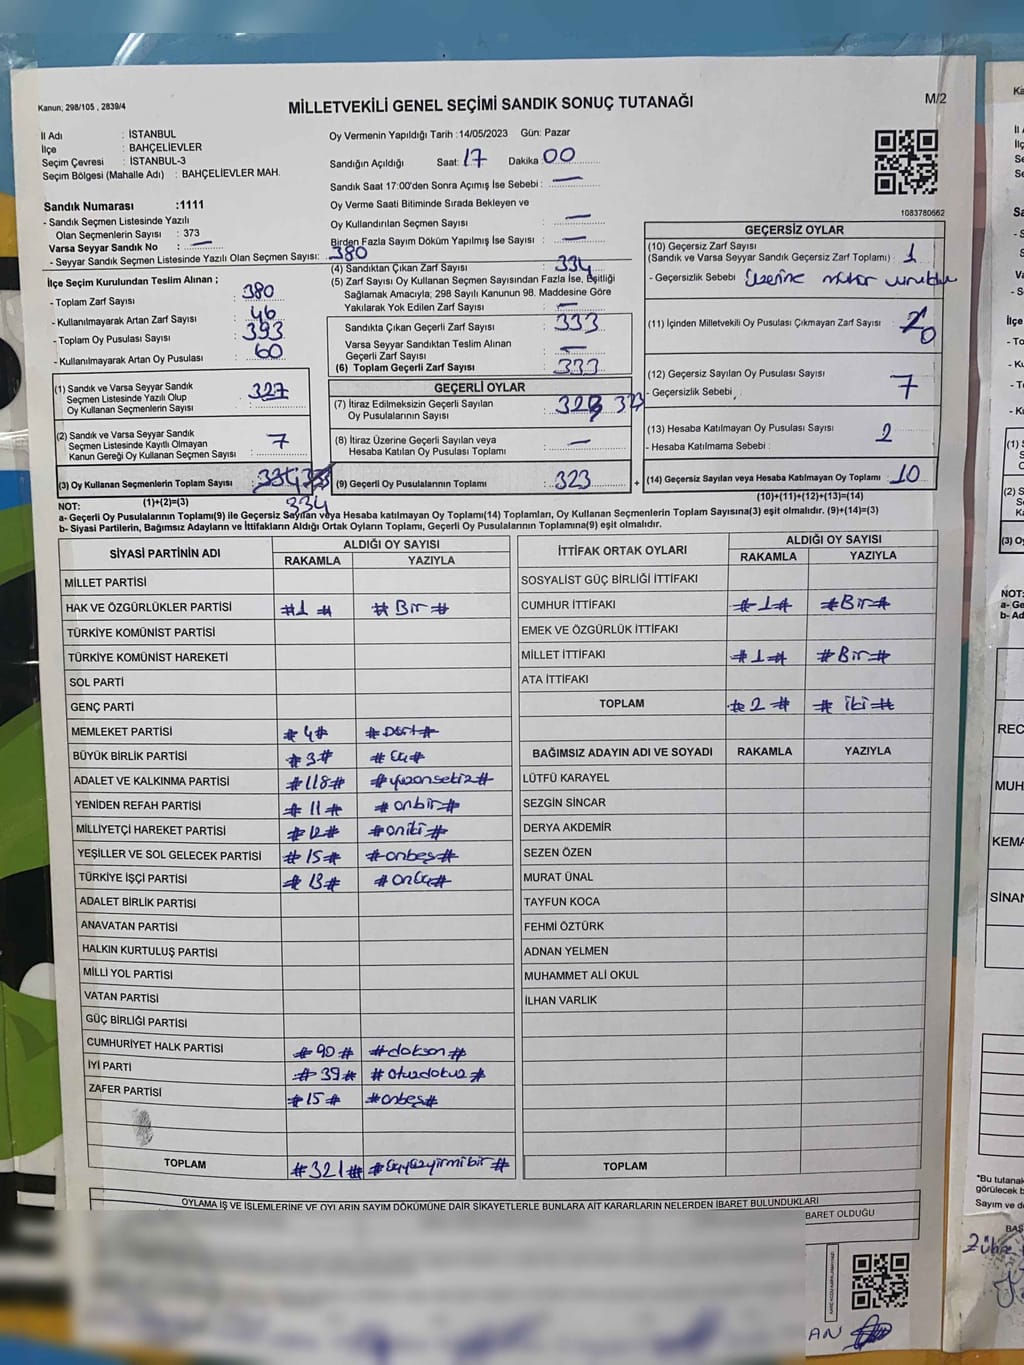 Kanun; 298/105 , 2839/4
MİLLETVEKİLİ GENEL SEÇİMİ SANDIK SONUÇ TUTANAĞI
M/2
İl Adı : İSTANBUL
İlçe : BAHÇELİEVLER
Seçim Çevresi : İSTANBUL-3
Seçim Bölgesi (Mahalle Adı) : BAHÇELİEVLER MAH.
Oy Vermenin Yapıldığı Tarih :14/05/2023 Gün: Pazar
Sandığın Açıldığı Saat: 17 Dakika: 00
Sandık Saat 17:00'den Sonra Açımış İse Sebebi : —
Sandık Numarası :1111
- Sandık Seçmen Listesinde Yazılı
Olan Seçmenlerin Sayısı : 373
Varsa Seyyar Sandık No : —
- Seyyar Sandık Seçmen Listesinde Yazılı Olan Seçmen Sayısı: 380
Oy Verme Saati Bitiminde Sırada Bekleyen ve
Oy Kullandırılan Seçmen Sayısı : —
Birden Fazla Sayım Döküm Yapılmış İse Sayısı : —
1083780662
İlçe Seçim Kurulundan Teslim Alınan ;
- Toplam Zarf Sayısı : 380
- Kullanılmayarak Artan Zarf Sayısı : 46
- Toplam Oy Pusulası Sayısı : 393
- Kullanılmayarak Artan Oy Pusulası : 60
(1) Sandık ve Varsa Seyyar Sandık
Seçmen Listesinde Yazılı Olup
Oy Kullanan Seçmenlerin Sayısı : 327
(2) Sandık ve Varsa Seyyar Sandık
Seçmen Listesinde Kayıtlı Olmayan
Kanun Gereği Oy Kullanan Seçmen Sayısı : 7
(3) Oy Kullanan Seçmenlerin Toplam Sayısı : 334
(1)+(2)=(3)
(4) Sandıktan Çıkan Zarf Sayısı : 334
(5) Zarf Sayısı Oy Kullanan Seçmen Sayısından Fazla İse, Eşitliği
Sağlamak Amacıyla; 298 Sayılı Kanunun 98. Maddesine Göre
Yakılarak Yok Edilen Zarf Sayısı : —
Sandıkta Çıkan Geçerli Zarf Sayısı : 333
Varsa Seyyar Sandıktan Teslim Alınan
Geçerli Zarf Sayısı : —
(6) Toplam Geçerli Zarf Sayısı : 333
GEÇERLİ OYLAR
(7) İtiraz Edilmeksizin Geçerli Sayılan
Oy Pusulalarının Sayısı : 323
(8) İtiraz Üzerine Geçerli Sayılan veya
Hesaba Katılan Oy Pusulası Toplamı : —
(9) Geçerli Oy Pusulalarının Toplamı : 323
+
GEÇERSİZ OYLAR
(10) Geçersiz Zarf Sayısı
(Sandık ve Varsa Seyyar Sandık Geçersiz Zarf Toplamı) : 1
- Geçersizlik Sebebi : üzerine mühür
(11) İçinden Milletvekili Oy Pusulası Çıkmayan Zarf Sayısı : 0
(12) Geçersiz Sayılan Oy Pusulası Sayısı : 7
- Geçersizlik Sebebi
(13) Hesaba Katılmayan Oy Pusulası Sayısı : 2
- Hesaba Katılmama Sebebi :
(14) Geçersiz Sayılan veya Hesaba Katılmayan Oy Toplamı : 10
(10)+(11)+(12)+(13)=(14)
NOT:
a- Geçerli Oy Pusulalarının Toplamı(9) ile Geçersiz Sayılan veya Hesaba katılmayan Oy Toplamı(14) Toplamları, Oy Kullanan Seçmenlerin Toplam Sayısına(3) eşit olmalıdır. (9)+(14)=(3)
b- Siyasi Partilerin, Bağımsız Adayların ve İttifakların Aldığı Ortak Oyların Toplamı, Geçerli Oy Pusulalarının Toplamına(9) eşit olmalıdır.
SİYASİ PARTİNİN ADI ALDIĞI OY SAYISI
RAKAMLA YAZIYLA
MİLLET PARTİSİ
HAK VE ÖZGÜRLÜKLER PARTİSİ #1# #Bir#
TÜRKİYE KOMÜNİST PARTİSİ
TÜRKİYE KOMÜNİST HAREKETİ
SOL PARTİ
GENÇ PARTİ
MEMLEKET PARTİSİ #4# #Dört#
BÜYÜK BİRLİK PARTİSİ #3# #Üç#
ADALET VE KALKINMA PARTİSİ #118# #yüzonsekiz#
YENİDEN REFAH PARTİSİ #11# #onbir#
MİLLİYETÇİ HAREKET PARTİSİ #12# #oniki#
YEŞİLLER VE SOL GELECEK PARTİSİ #15# #onbeş#
TÜRKİYE İŞÇİ PARTİSİ #13# #onüç#
ADALET BİRLİK PARTİSİ
ANAVATAN PARTİSİ
HALKIN KURTULUŞ PARTİSİ
MİLLİ YOL PARTİSİ
VATAN PARTİSİ
GÜÇ BİRLİĞİ PARTİSİ
CUMHURİYET HALK PARTİSİ #90# #doksan#
İYİ PARTİ #39# #otuzdokuz#
ZAFER PARTİSİ #15# #onbeş#
TOPLAM #321# #üçyüzyirmibir#
İTTİFAK ORTAK OYLARI ALDIĞI OY SAYISI
RAKAMLA YAZIYLA
SOSYALİST GÜÇ BİRLİĞİ İTTİFAKI
CUMHUR İTTİFAKI #1# #Bir#
EMEK VE ÖZGÜRLÜK İTTİFAKI
MİLLET İTTİFAKI #1# #Bir#
ATA İTTİFAKI
TOPLAM #2# #iki#
BAĞIMSIZ ADAYIN ADI VE SOYADI RAKAMLA YAZIYLA
LÜTFÜ KARAYEL
SEZGİN SİNCAR
DERYA AKDEMİR
SEZEN ÖZEN
MURAT ÜNAL
TAYFUN KOCA
FEHMİ ÖZTÜRK
ADNAN YELMEN
MUHAMMET ALİ OKUL
İLHAN VARLIK
TOPLAM
OYLAMA İŞ VE İŞLEMLERİNE VE OYLARIN SAYIM DÖKÜMÜNE DAİR ŞİKAYETLERLE BUNLARA AİT KARARLARIN NELERDEN İBARET BULUNDUKLARI
BARET OLDUĞU
AN
NOT:
a- Ge
b- Ad
REC
MUH
KEMA
SİNAN
*Bu tutanak
görülecek b
Sayım ve d
BAŞ